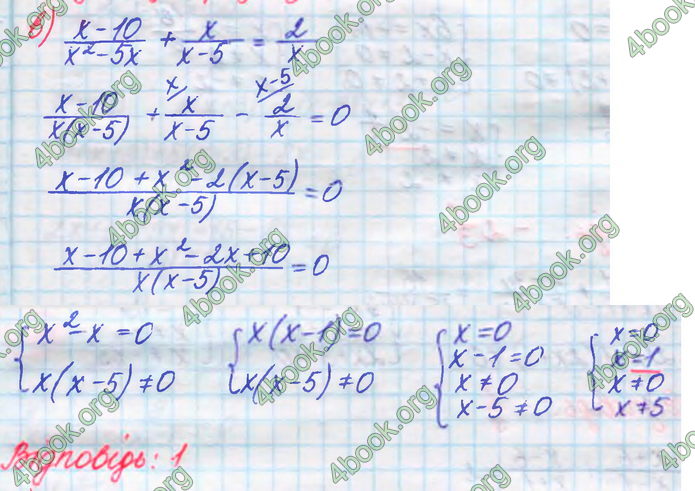 б) (x-10)/(x²-5x) + x/(x-5) = 2/x
(x-10)/(x(x-5)) + x/ x/(x-5) - x-5/ 2/x = 0
(x-10+x²-2(x-5))/(x(x-5)) = 0
(x-10+x²-2x+10)/(x(x-5)) = 0
{ x²-x=0 { x(x-1)=0 { x=0 { x=0
x(x-5)≠0 x(x-5)≠0 x-1=0 x=1
x≠0 x≠0
x-5≠0 x≠5
Відповідь: 1
4book.org